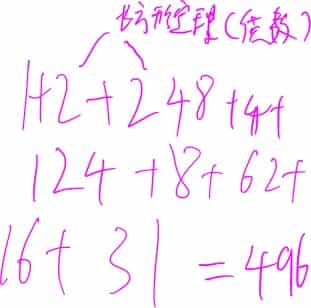 长方形定理(倍数)
1+2+248+4+
124+8+62+
16+31=496